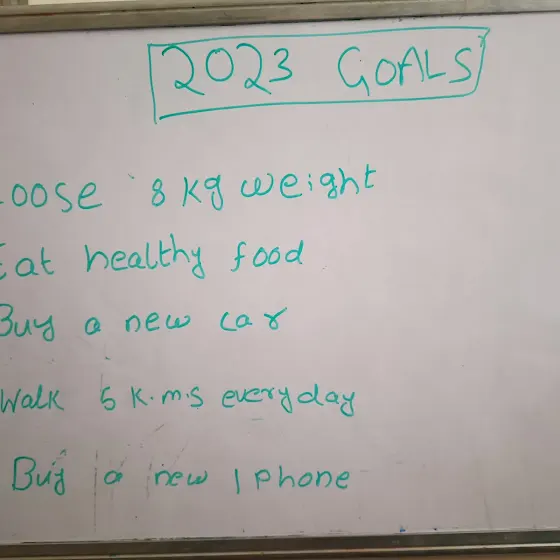 2023 GOALS
Loose 8 kg weight
Eat healthy food
Buy a new car
Walk 5 K.m.s everyday
Buy a new I phone